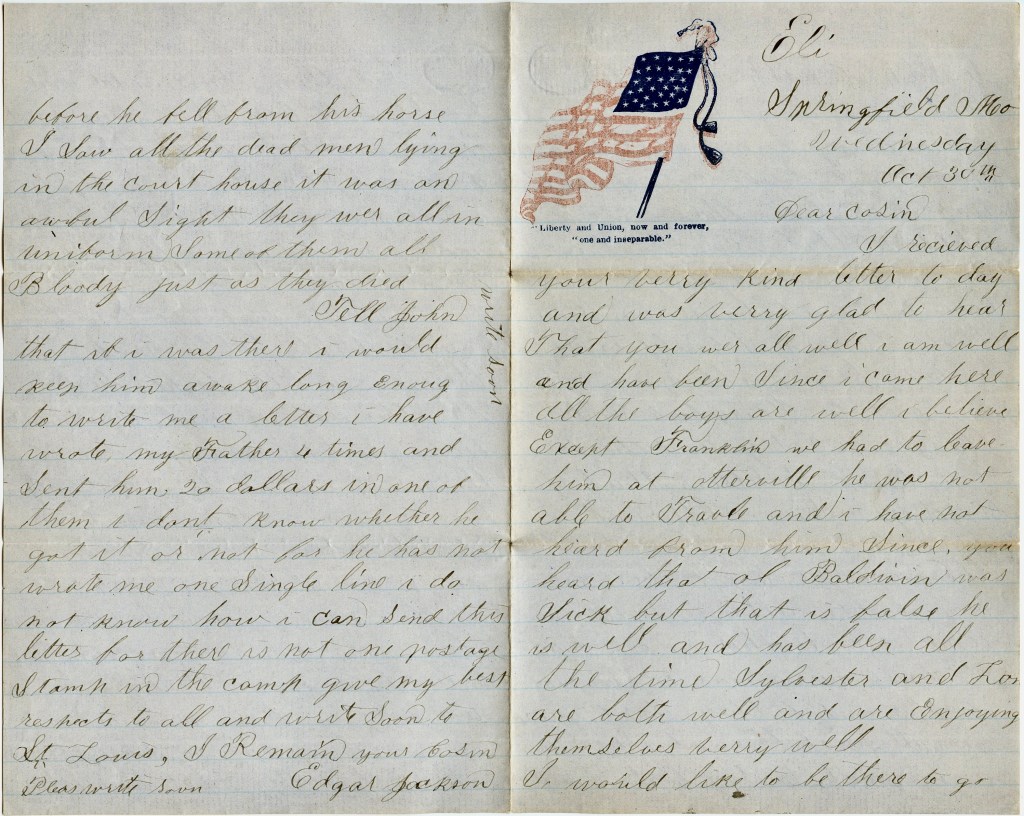 Eli
Springfield Mo
Wednesday
Oct 30th
"Liberty and Union, now and forever,
"one and inseparable."
Dear cosin
I recieved
your verry kind letter to day
and was verry glad to hear
That you wer all well i am well
and have been Since i came here
all the boys are well i believe
Except Franklin we had to leave
him at otterville he was not
able to Travle and i have not
heard from him Since, you
heard that ol Baldwin was
Sick but that is false he
is well and has been all
the time Sylvester and Lon
are both well and are Enjoying
themselves verry well
I would like to be there to go
before he fell from his horse
I Saw all the dead men lying
in the court house it was an
awful Sight they wer all in
uniform Some of them all
Bloody just as they died
Tell John
that if i was there i would
keep him awake long Enoug
to write me a letter i have
wrote my Father 4 times and
Sent him 20 dollars in one of
them i dont know whether he
got it or not for he has not
wrote me one Single line i do
not know how i can Send this
letter for there is not one postage
Stamp in the camp give my best
respects to all and write Soon to
St. Louis, I Remain your Cosin
Edgar Jackson
Pleas write soon
write soon